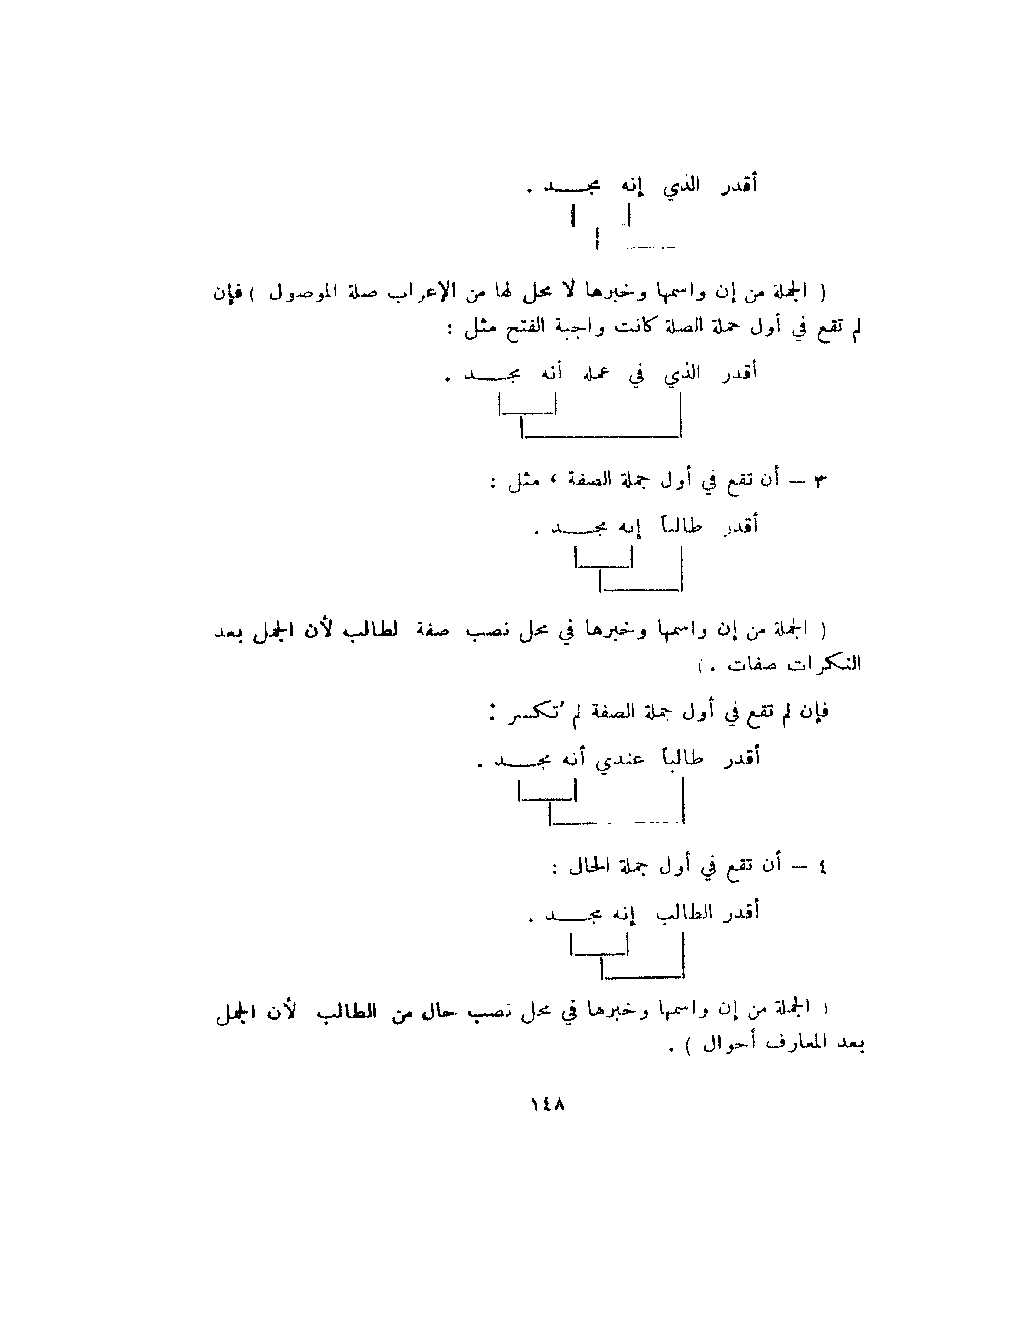 أقدر الذي إنه مجــد .
( الجملة من إن واسمها وخبرها لا محل لها من الإعراب صلة الموصول ) فإن
لم تقع في أول جملة الصلة كانت واجبة الفتح مثل :
أقدر الذي في عمله أنه مجــد .
٣ – أن تقع في أول جملة الصفة ، مثل :
أقدر طالباً إنه مجــد .
( الجملة من إن واسمها وخبرها في محل نصب صفة لطالب لأن الجمل بعد
النكرات صفات . )
فإن لم تقع في أول جملة الصفة لم تُكسر :
أقدر طالباً عندي أنه مجــد .
٤ – أن تقع في أول جملة الحال :
أقدر الطالب إنه مجــد .
( الجملة من إن واسمها وخبرها في محل نصب حال من الطالب لأن الجمل
بعد المعارف أحوال ) .
١٤٨